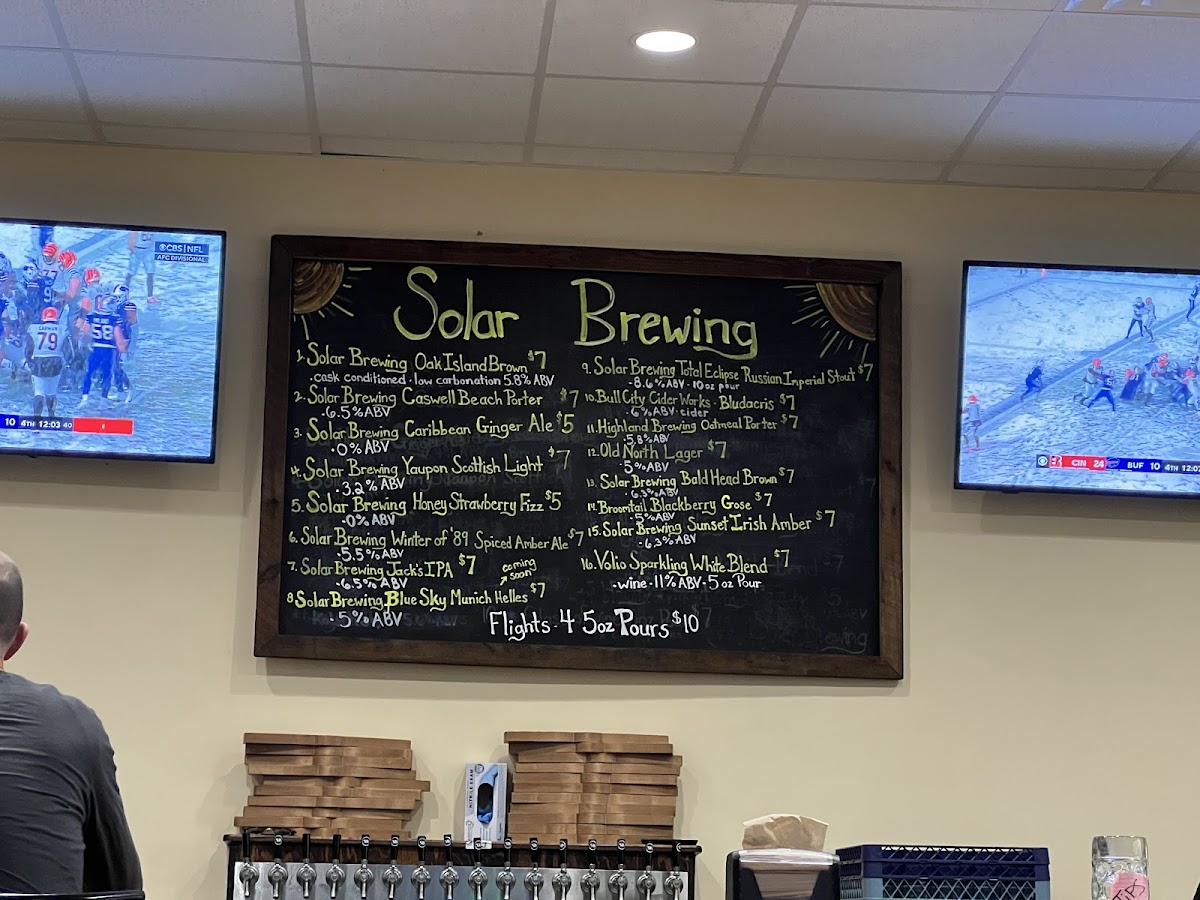 Solar Brewing
1. Solar Brewing Oak Island Brown $7
· cask conditioned · low carbonation 5.8% ABV
2. Solar Brewing Caswell Beach Porter $7
· 6.5% ABV
3. Solar Brewing Caribbean Ginger Ale $5
· 0% ABV
4. Solar Brewing Yaupon Scottish Light $7
· 3.2% ABV
5. Solar Brewing Honey Strawberry Fizz $5
· 0% ABV
6. Solar Brewing Winter of '89 Spiced Amber Ale $7
· 5.5% ABV
7. Solar Brewing Jack's IPA $7
· 6.5% ABV
coming
soon
8 Solar Brewing Blue Sky Munich Helles $7
· 5% ABV
9. Solar Brewing Total Eclipse Russian Imperial Stout $7
· 8.6% ABV · 10 oz pour
10. Bull City Cider Works · Bludacris $7
· 6% ABV · cider
11. Highland Brewing Oatmeal Porter $7
· 5.8% ABV
12. Old North Lager $7
· 5% ABV
13. Solar Brewing Bald Head Brown $7
· 6.3% ABV
14. Broomtail Blackberry Gose $7
· 5% ABV
15. Solar Brewing Sunset Irish Amber $7
· 6.3% ABV
16. Volio Sparkling White Blend $7
· wine · 11% ABV · 5 oz Pour
Flights - 4 5oz Pours $10
CBS | NFL
AFC DIVISIONAL
79
58
10 4TH 12:03 40
CIN 24 BUF 10 4TH 12:07
NITRILE EXAM